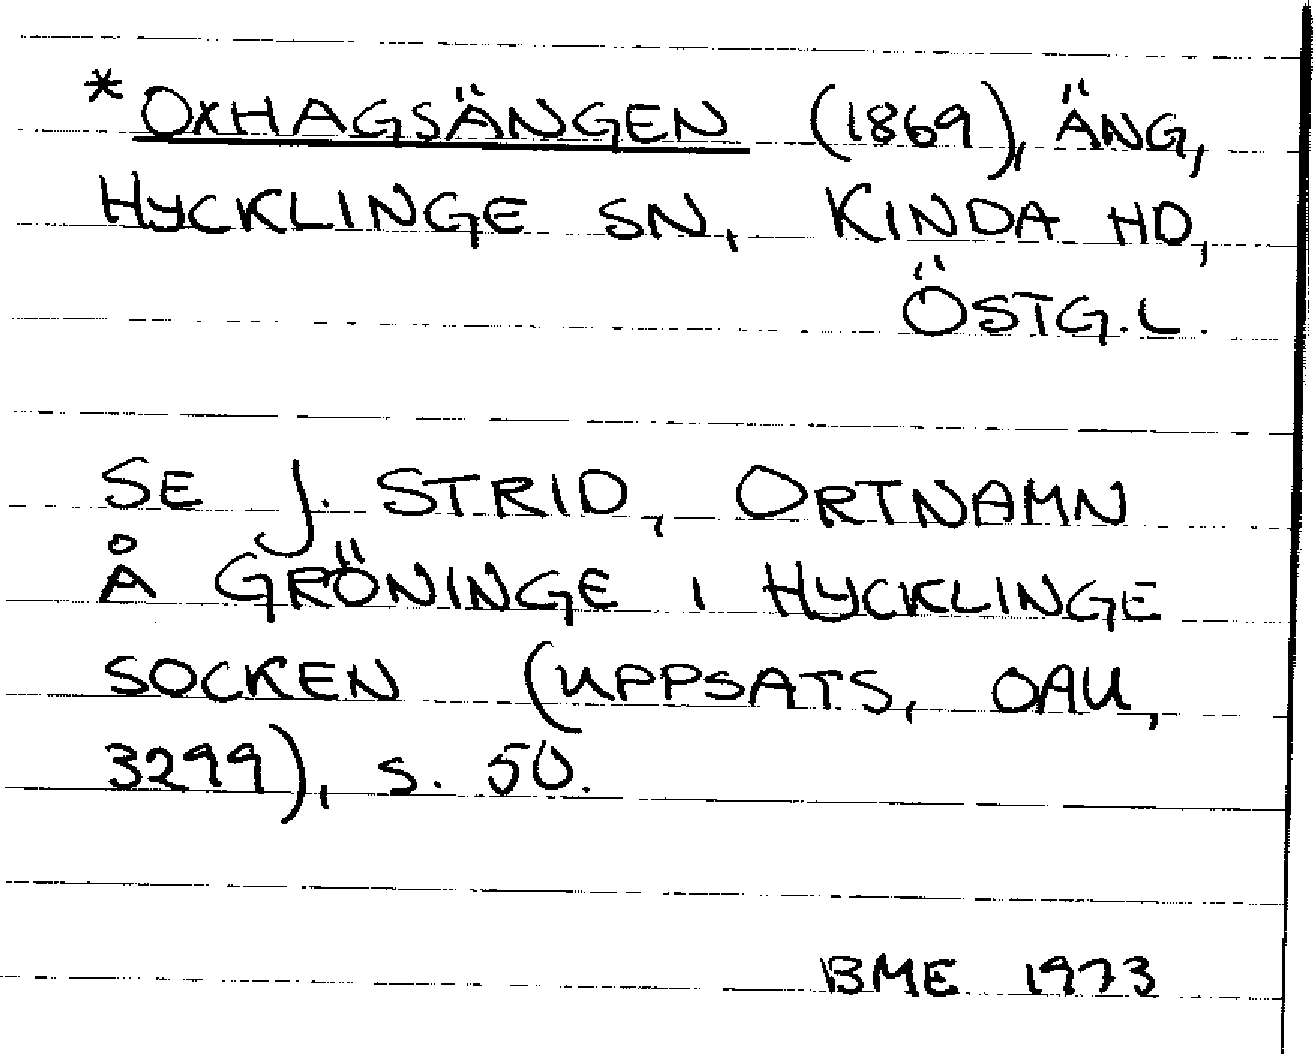 *OXHAGSÄNGEN (1869), ÄNG,
HYCKLINGE SN, KINDA HD,
ÖSTG.L.
SE J. STRID, ORTNAMN
Å GRÖNINGE I HYCKLINGE
SOCKEN (UPPSATS, OAU,
3299), S. 50.
BME 1973